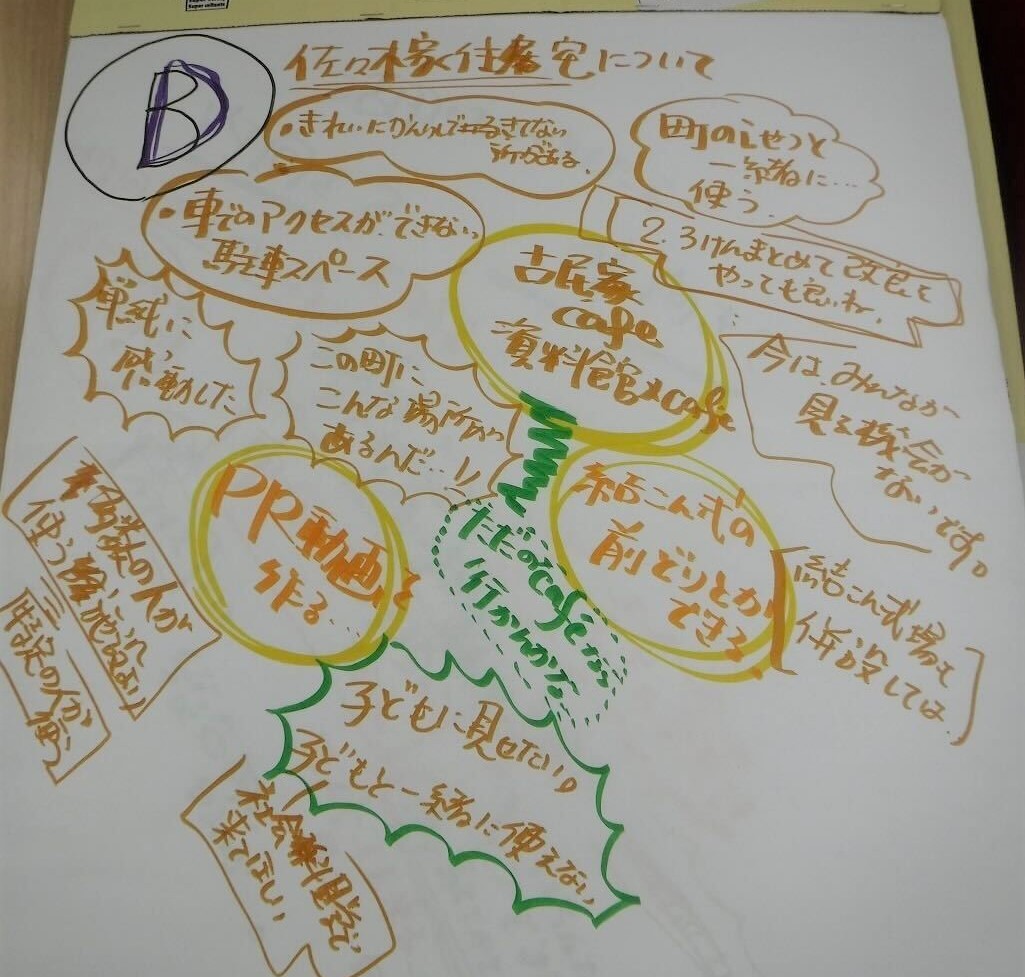 B
佐々木家住宅について
・きれいにかんりできてない
所がある
町のしせつと
一緒に…
使う。
・車でのアクセスができない
駐車スペース
2.3けんまとめて改良を
やっても良いね。
古民家
cafe
資料館×cafe
単純に
感動した
この町に
こんな場所が
あるんだ…!!
今は、みんなが
見る機会が
ないです。
PR動画を
作る。
結こん式の
前どりとか
できる
ただのcafeなら
行かんかな
結こん式場を
併設しては
多数の人が
使う施設よい
特定の人が
使う
子どもに見せたい。
子どもと一緒に使えない
社会科見学で
来てほしい